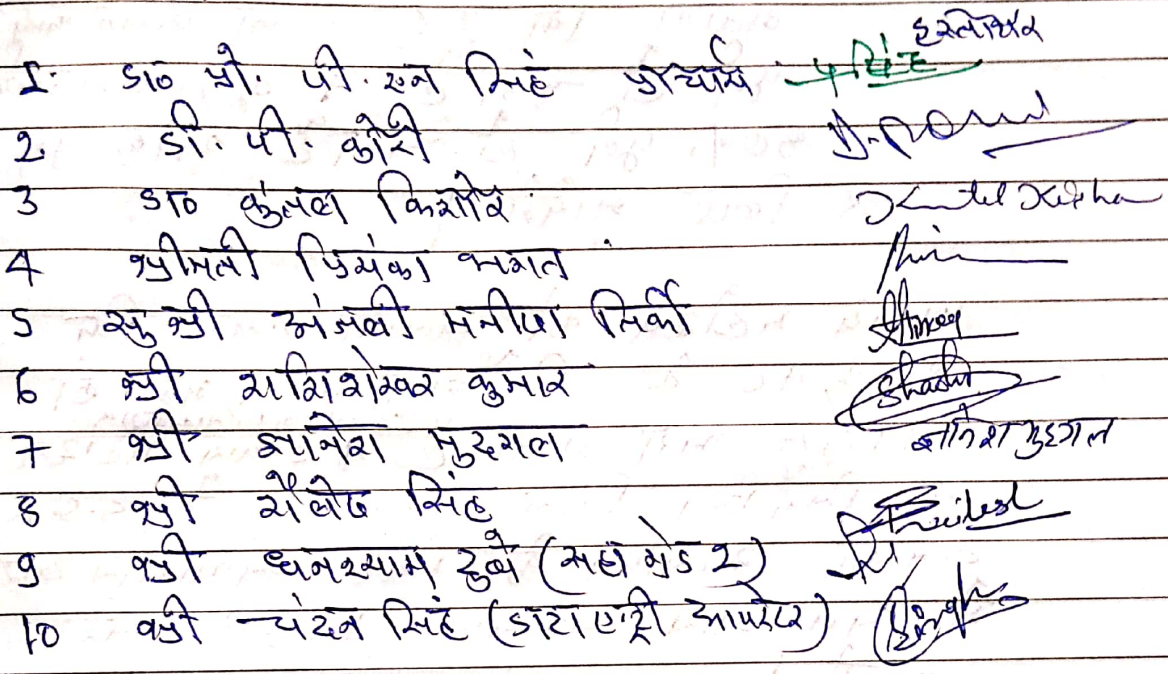 हस्ताक्षर
1. डा० प्रो. पी. एन सिंह प्राचार्य पीसिंह
2. डी. पी. कोरी
3 डा० कुंतल किशोर Kuntel Kishor
4 श्रीमती प्रियंका भगत
5 सु श्री अंजली मनीषा तिर्की
6 श्री शशिशेखर कुमार Shashi
7 श्री ज्ञानेश मुदगल ज्ञानेश मुदगल
8 श्री शैलेष सिंह Shailesh
9 श्री धनश्याम दुबे (सहा ग्रेड 2)
10 श्री चंदन सिंह (डाटा एंट्री आपरेटर) Singh